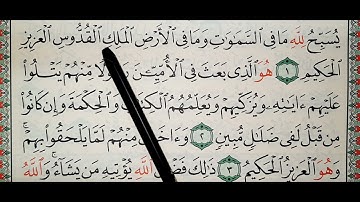 يُسَبِّحُ لِلَّهِ مَا فِى السَّمَٰوَٰتِ وَمَا فِى الْأَرْضِ الْمَلِكِ الْقُدُّوسِ الْعَزِيزِ
الْحَكِيمِ ١ هُوَ الَّذِى بَعَثَ فِى الْأُمِّيِّـۧنَ رَسُولًا مِّنْهُمْ يَتْلُوا۟
عَلَيْهِمْ ءَايَٰتِهِۦ وَيُزَكِّيهِمْ وَيُعَلِّمُهُمُ الْكِتَٰبَ وَالْحِكْمَةَ وَإِن كَانُوا۟
مِن قَبْلُ لَفِى ضَلَٰلٍ مُّبِينٍ ٢ وَءَاخَرِينَ مِنْهُمْ لَمَّا يَلْحَقُوا۟ بِهِمْ ۚ
وَهُوَ الْعَزِيزُ الْحَكِيمُ ٣ ذَٰلِكَ فَضْلُ اللَّهِ يُؤْتِيهِ مَن يَشَآءُ ۚ وَاللَّهُ